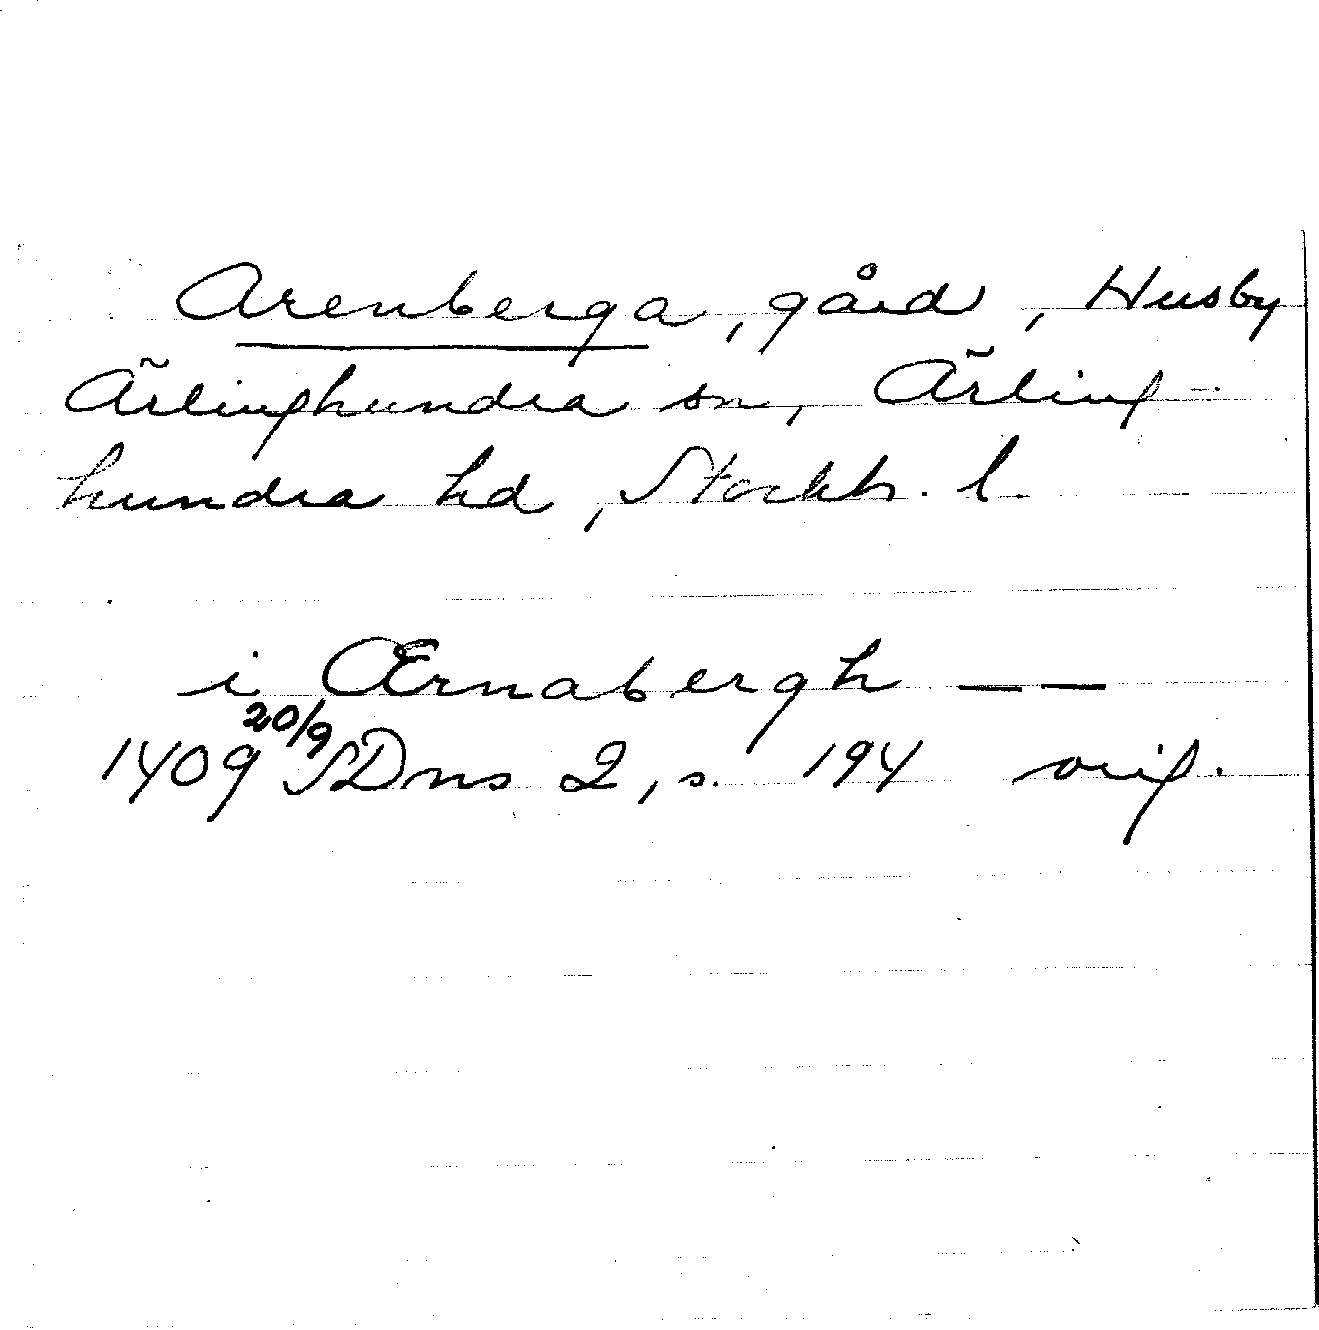 Arenberga, gård, Husby
Ärlinghundra sn, Ärling-
hundra hd, Stockh. l.
i Ærnabergh — —
1409 20/9 SDns 2, s. 194 orig.